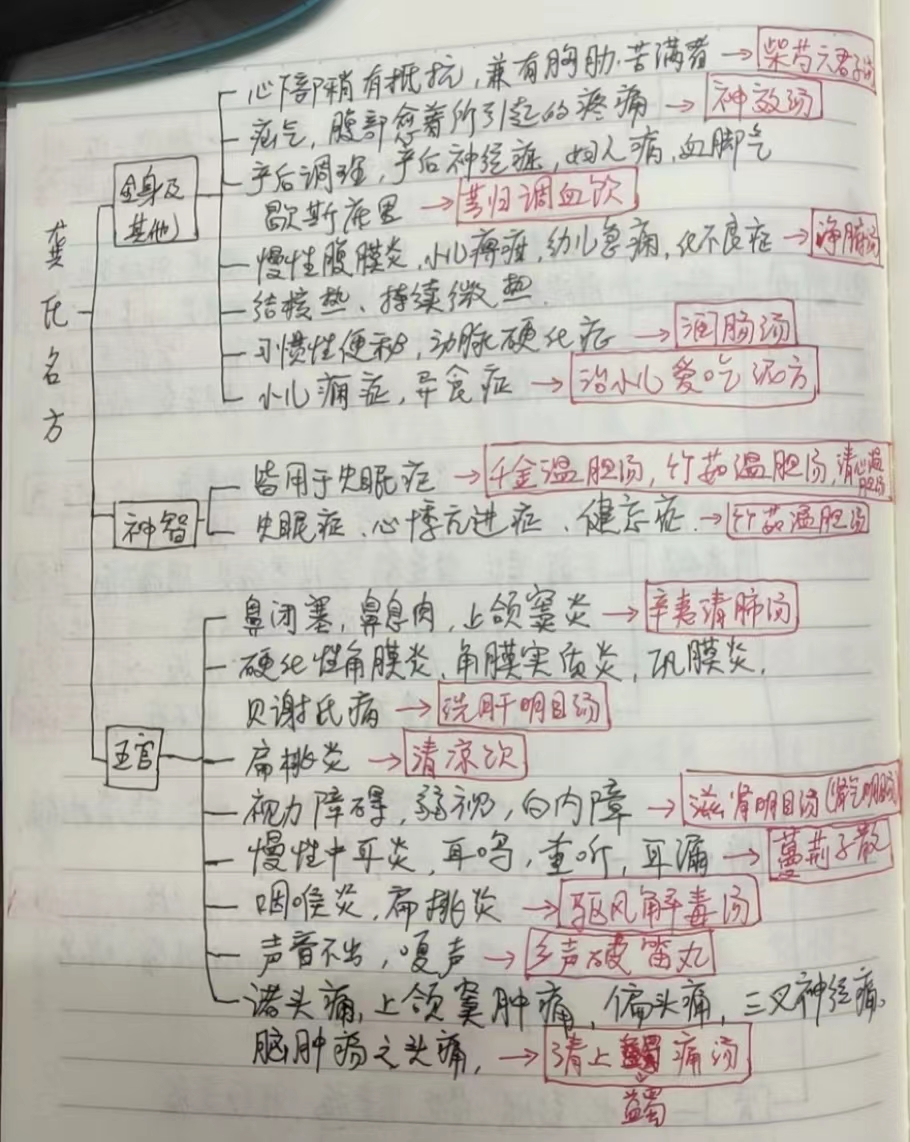 龚氏名方
全身及其他)
心下部稍有抵抗,兼有胸肋苦满者→柴芍六君子汤
疝气,腹部 着所引起的疼痛→神效汤
产后调理,产后神经症,妇人病,血脚气
歇斯底里→芎归调血饮
慢性腹膜炎,小儿痞症,幼儿急痫,化不良症→净腑汤
结核热、持续微热.
习惯性便秘,动脉硬化症→润肠汤
小儿痫症,异食症→治小儿爱吃泥方
神智
皆用于失眠症→千金温胆汤,竹茹温胆汤,清心温胆汤
失眠症、心悸亢进症、健忘症→竹茹温胆汤
五官
鼻闭塞,鼻息肉,上颌窦炎→辛夷清肺汤
硬化性角膜炎,角膜实质炎,巩膜炎,
贝谢氏病→洗肝明目汤
扁桃炎→清凉饮
视力障碍,弱视,白内障→滋肾明目汤(肾气明目汤)
慢性中耳炎,耳鸣,重听,耳漏→蔓荆子散
咽喉炎,扁桃炎→驱风解毒汤
声音不出,嗄声→响声破笛丸
诸头痛,上颌窦肿痛,偏头痛,三叉神经痛,
脑肿疡之头痛,→清上蠲痛汤
蠲